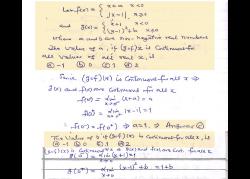 Let f(x) = { x+a x<0
|x-1| x≥0
and g(x) = { x+1 x<0
(x-1)²+b x≥0
where a and b are non-negative real numbers
The value of a, if (gof)(x) is continuous for
all values of real x, is
ⓐ -1 ⓑ 0 ⓒ 1 ⓓ 2
Since (gof)(x) is continuous for all x ⇒
g(x) and f(x) are continuous for all x
f(0⁻) = lim x→0⁻ (x+a) = a
f(0⁺) = lim x→0⁺ |x-1| = 1
f(0⁻) = f(0⁺) ⇒ a=1 ⇒ Answer ⓒ
The Value of b if (gof)(x) is continuous for all x, is
ⓐ -1 ⓑ 0 ⓒ 1 ⓓ 2
(gof)(x) is continuous for all x
g(0⁻) = lim x→0⁻ (x+1) = 1
g(0⁺) = lim x→0⁺ (x-1)²+b = 1+b